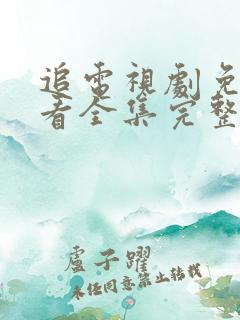 追電視劇免
看全集完整
盧子躍
未经同意禁止转载